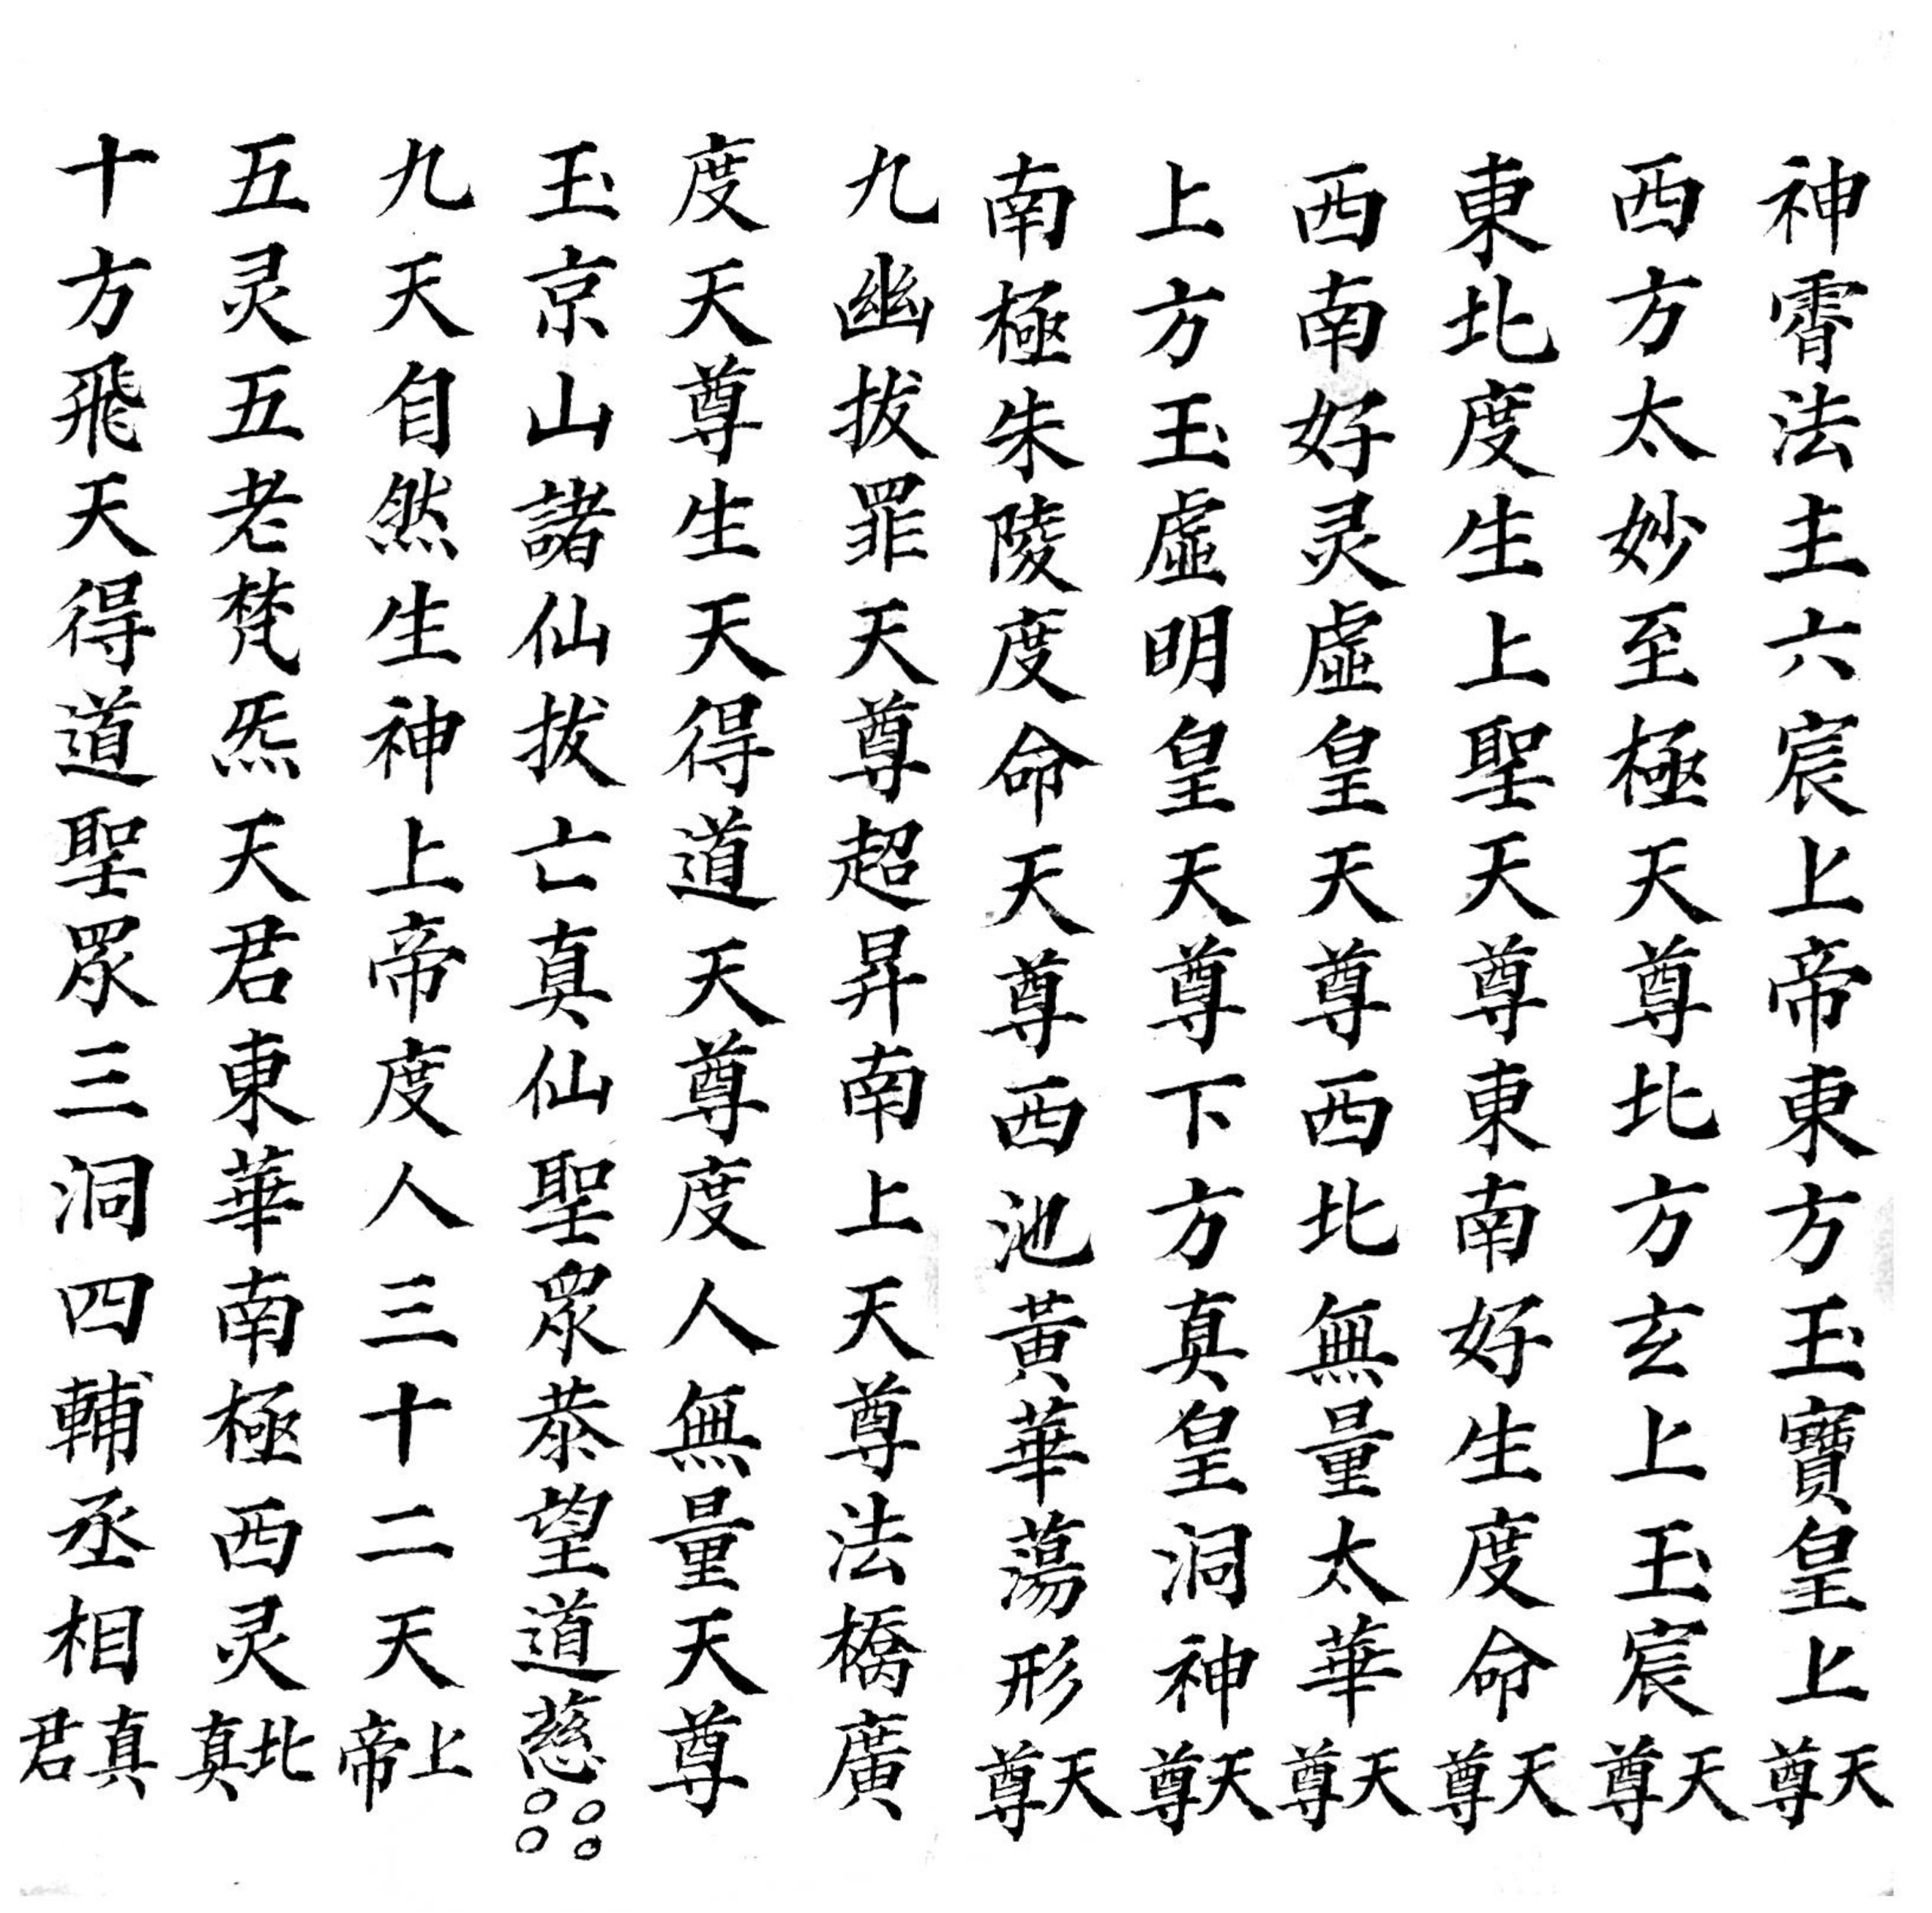 神霄法主六宸上帝東方玉寶皇上天尊
西方太妙至極天尊北方玄上玉宸天尊
東北度生上聖天尊東南好生度命天尊
西南好灵虛皇天尊西北無量太華天尊
上方玉虛明皇天尊下方真皇洞神天尊
南極朱陵度命天尊西池黃華蕩形天尊
九幽拔罪天尊超昇南上天尊法橋廣
度天尊生天得道天尊度人無量天尊
玉京山諸仙拔亡真仙聖眾恭望道慈
九天自然生神上帝度人三十二天上帝
五灵五老梵炁天君東華南極西灵北真
十方飛天得道聖眾三洞四輔丞相真君